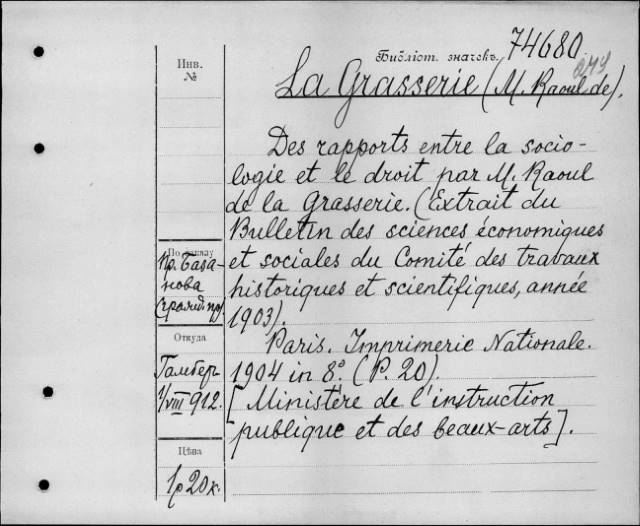 Инв.
№
Библіот. значекъ. 74680.
La Grasserie (M. Raoul de).
Des rapports entre la socio-
logie et le droit par M. Raoul
de la Grasserie. (Extrait du
Bulletin des sciences économiques
et sociales du Comité des travaux
historiques et scientifiques, année
1903).
Paris. Imprimerie Nationale.
1904 in 8º. (P. 20).
[Ministère de l'instruction
publique et des beaux-arts].
По заказу
Пр. База-
нова
Откуда
Гамбер
1/VIII 912.
Цѣна
1р 20к.